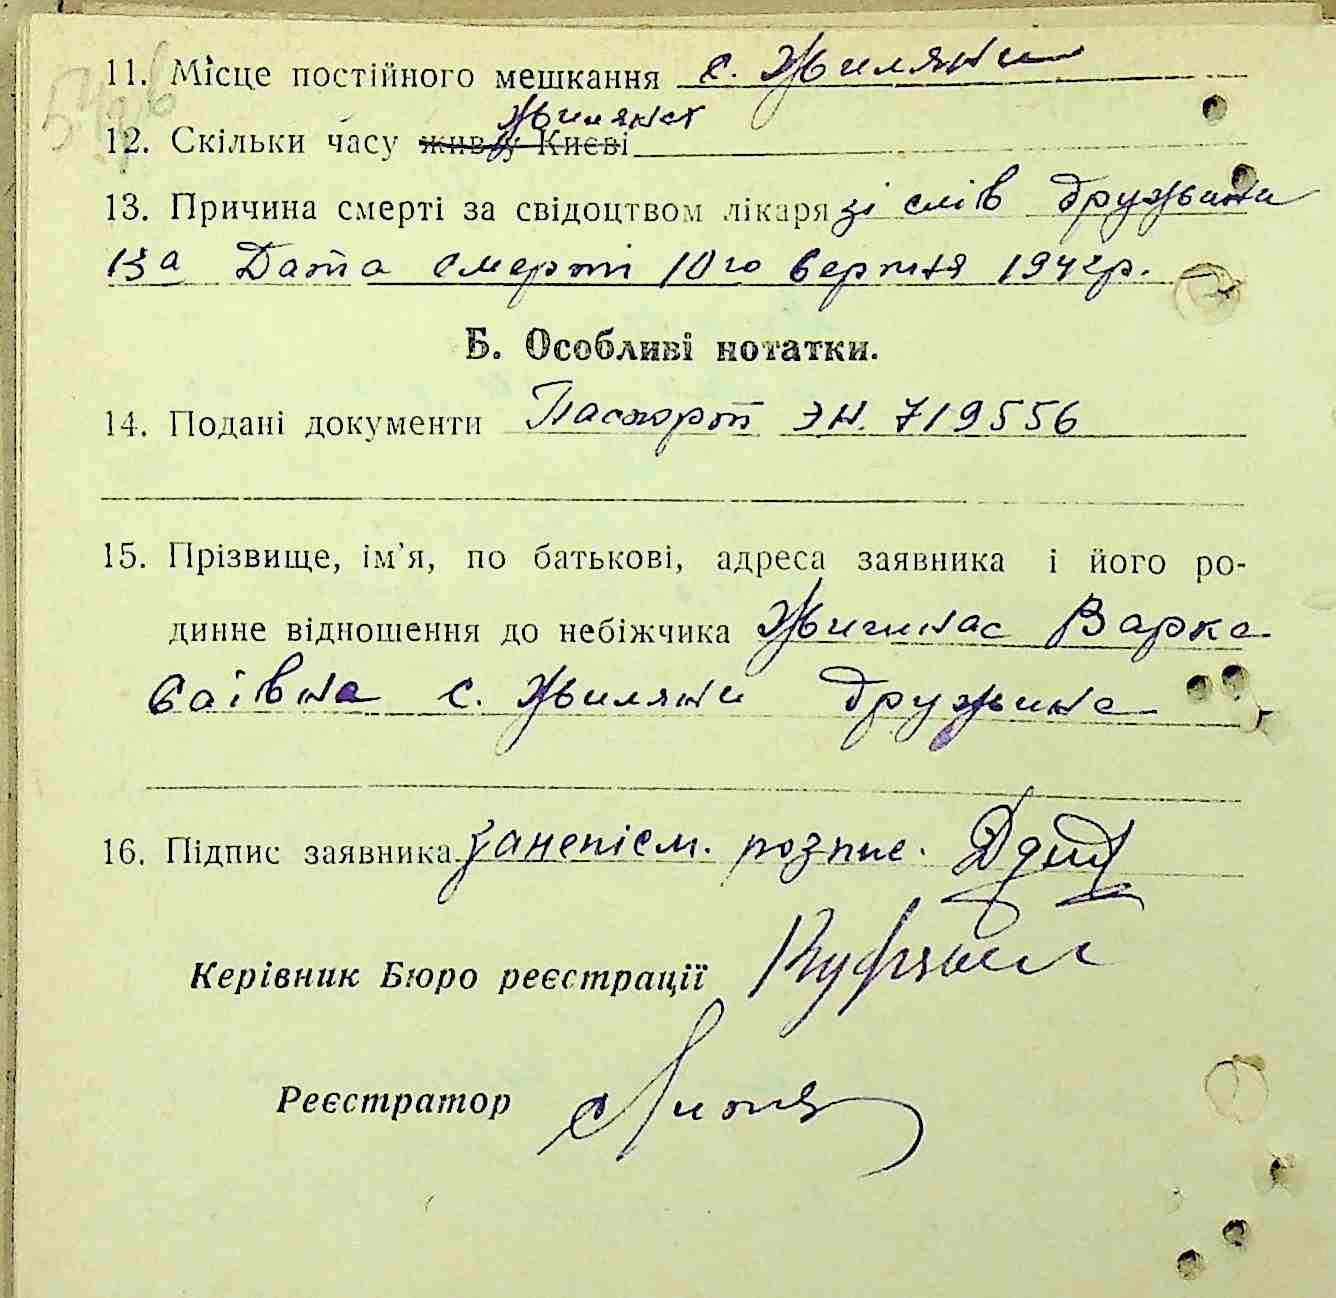 11. Місце постійного мешкання с. Жиляни
Жиляна
12. Скільки часу живу Києві
13. Причина смерті за свідоцтвом лікаря зі слів дружини
Дата смерті 10го верпня 1942р.
Б. Особливі нотатки.
14. Подані документи Паспорт ЭН. 719556
15. Прізвище, ім'я, по батькові, адреса заявника і його ро-
динне відношення до небіжчика Варка
Саівна с. Жиляни дружина
16. Підпис заявника занепісм. розпис.
Керівник Бюро реєстрації
Реєстратор